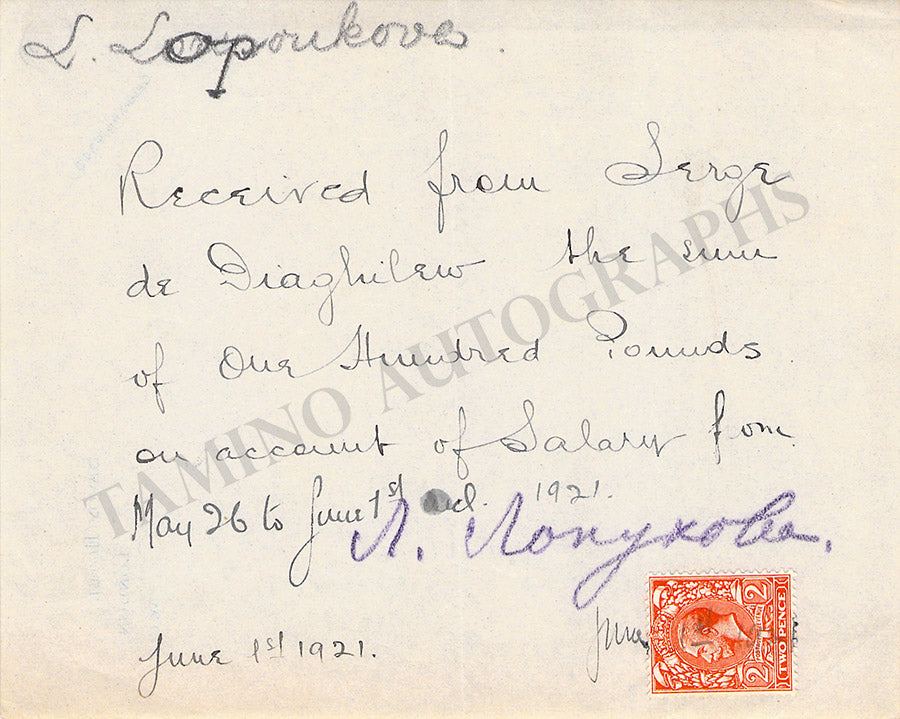 L. Lopoukova
Received from Serge
de Diaghilew the sum
of One Hundred Pounds
on account of Salary from
May 26 to June 1st incl. 1921.
Л. Лопухова.
June 1st 1921.
June
TWO PENCE
2 2
TAMINO AUTOGRAPHS